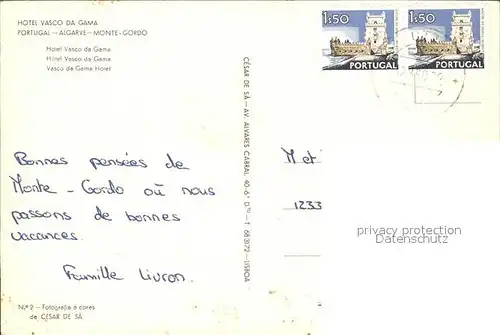 HOTEL VASCO DA GAMA
PORTUGAL — ALGARVE — MONTE-GORDO
Hotel Vasco da Gama
Hôtel Vasco da Gama
Vasco da Gama Hotel
Bonnes pensées de
Monte - Gordo où nous
passons de bonnes
vacances.
Famille
N.º 2 — Fotografia a cores
de CÉSAR DE SÁ
CÉSAR DE SÁ — AV. ALVARES CABRAL, 40-6.º D.to — T. 683172 — LISBOA
1$50
PORTUGAL
1$50
PORTUGAL
M et
1233
privacy protection
Datenschutz